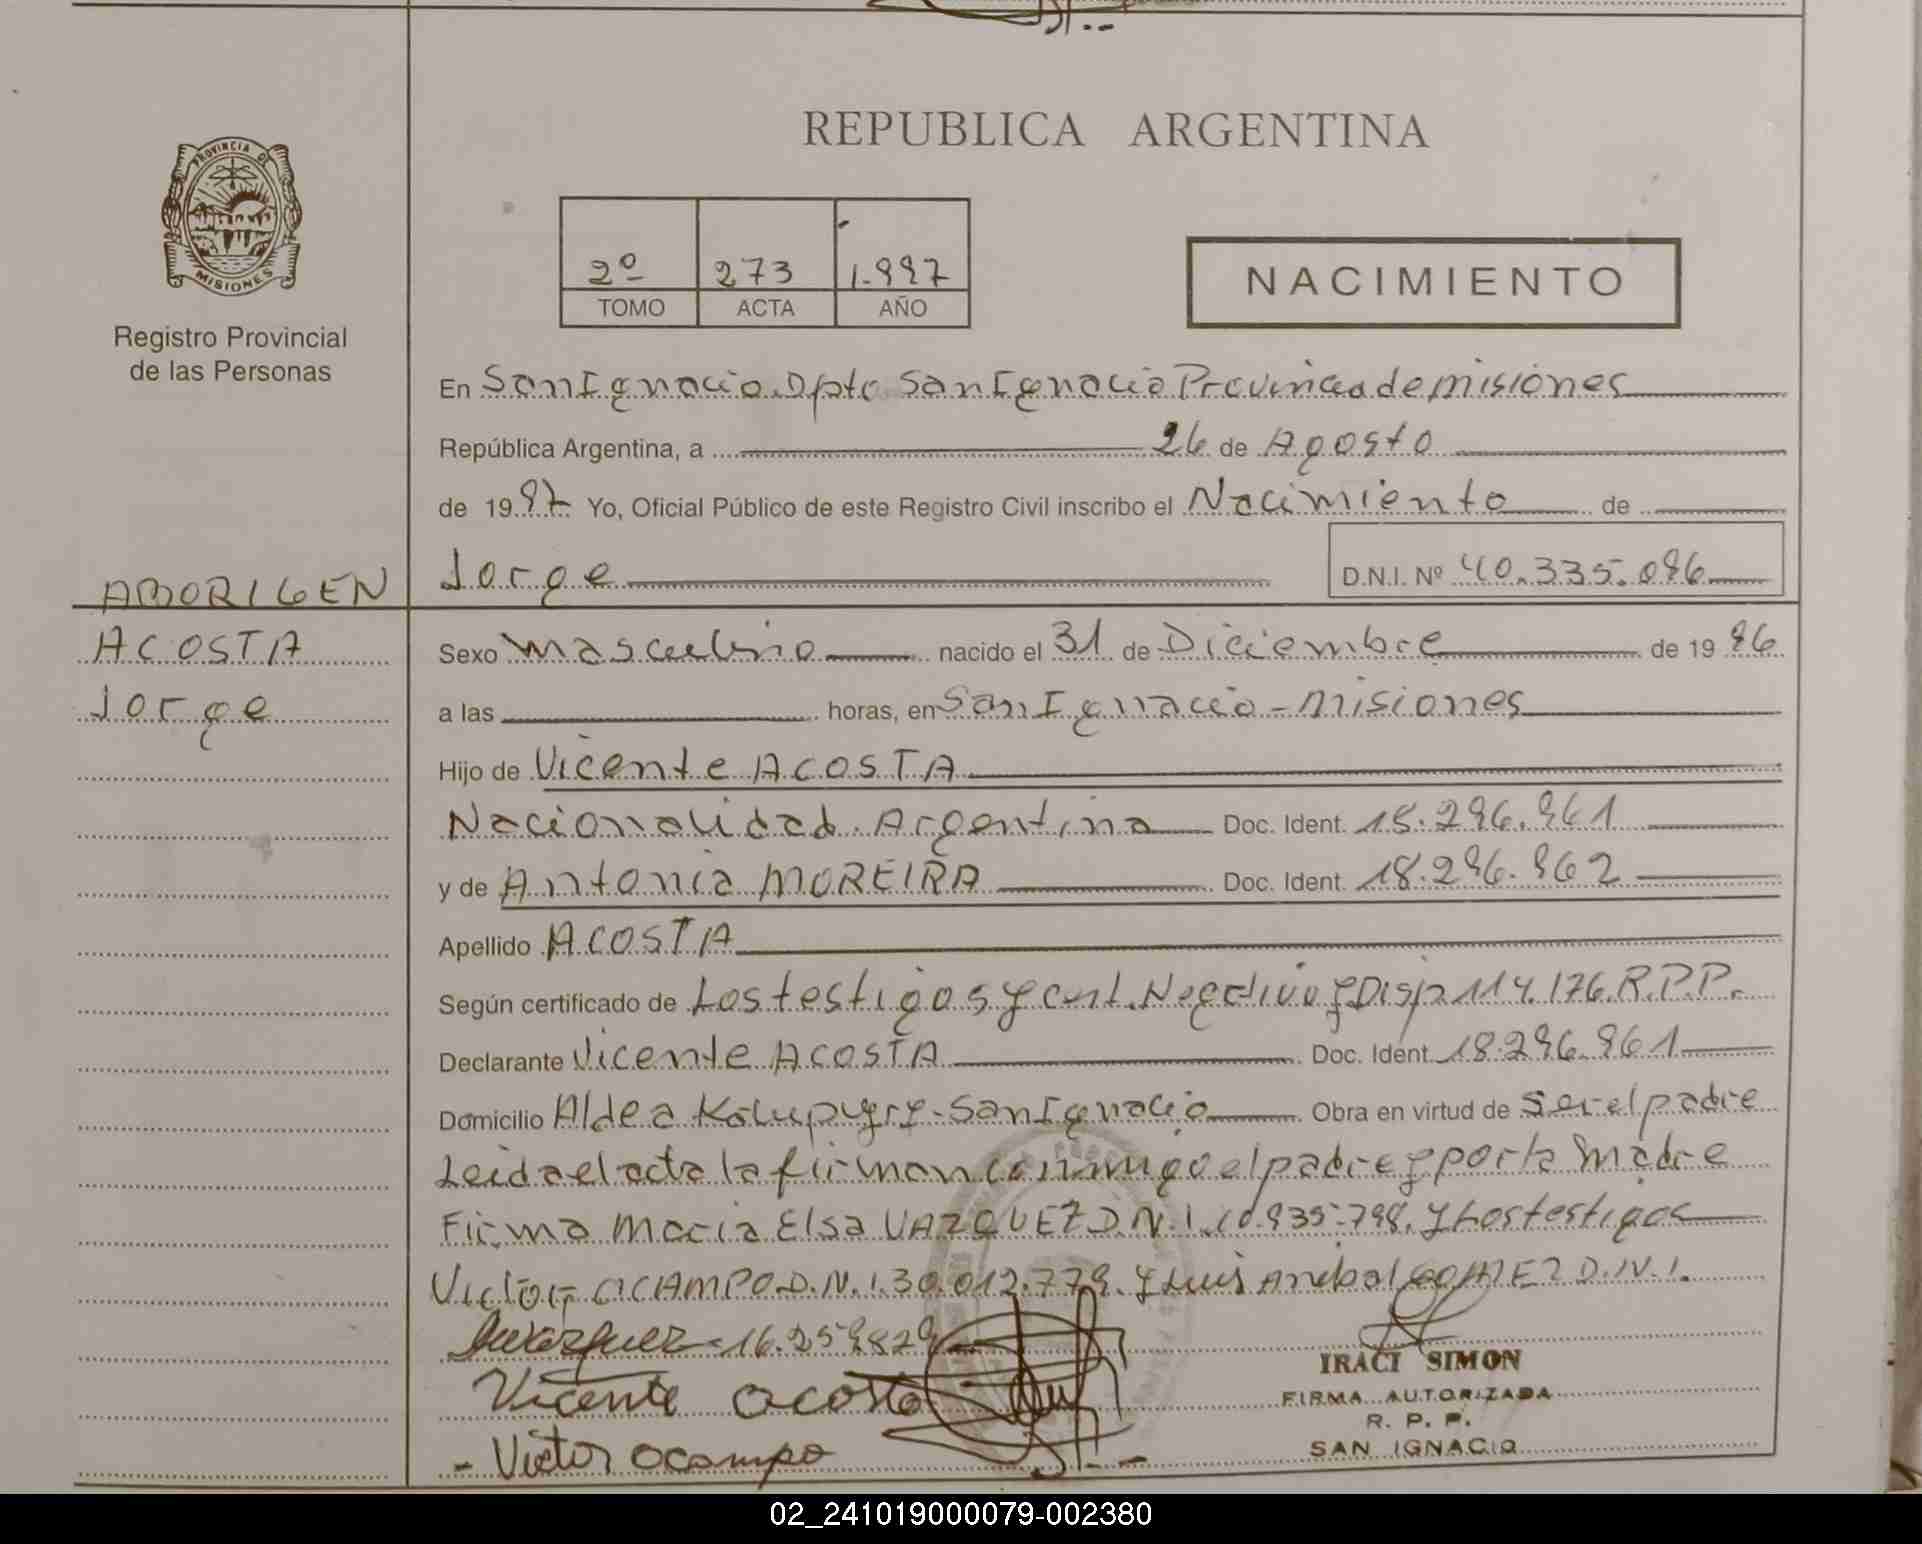 REPUBLICA ARGENTINA
PROVINCIA DE
MISIONES
Registro Provincial
de las Personas
2º 273 1.997
TOMO ACTA AÑO
NACIMIENTO
En San Ignacio Dpto San Ignacio Provincia de misiones
República Argentina, a 26 de Agosto
de 1997 Yo, Oficial Público de este Registro Civil inscribo el Nacimiento de
Jorge D.N.I. Nº 40.335.096
ABORIGEN
ACOSTA
Jorge
Sexo masculino nacido el 31 de Diciembre de 1996
a las horas, en San Ignacio - misiones
Hijo de Vicente ACOSTA
Nacionalidad Argentina Doc. Ident. 18.296.961
y de Antonia MOREIRA Doc. Ident. 18.296.962
Apellido ACOSTA
Según certificado de Los testigos y cert. Negativo y Disp 114.176.R.P.P.
Declarante Vicente ACOSTA Doc. Ident. 18.296.961
Domicilio Aldea - San Ignacio Obra en virtud de Ser el padre
Leida el acta la firman conmigo el padre y por la madre
Firma Maria Elsa VAZQUEZ D.N.I. 10.935.798. y Los testigos
Victor OCAMPO D.N.I. 30.012.779. y Luis Anibal GOMEZ D.N.I.
16.259.829
Vicente acosta
- Victor ocampo
IRACI SIMON
FIRMA AUTORIZADA
R. P. P.
SAN IGNACIO
02_241019000079-002380